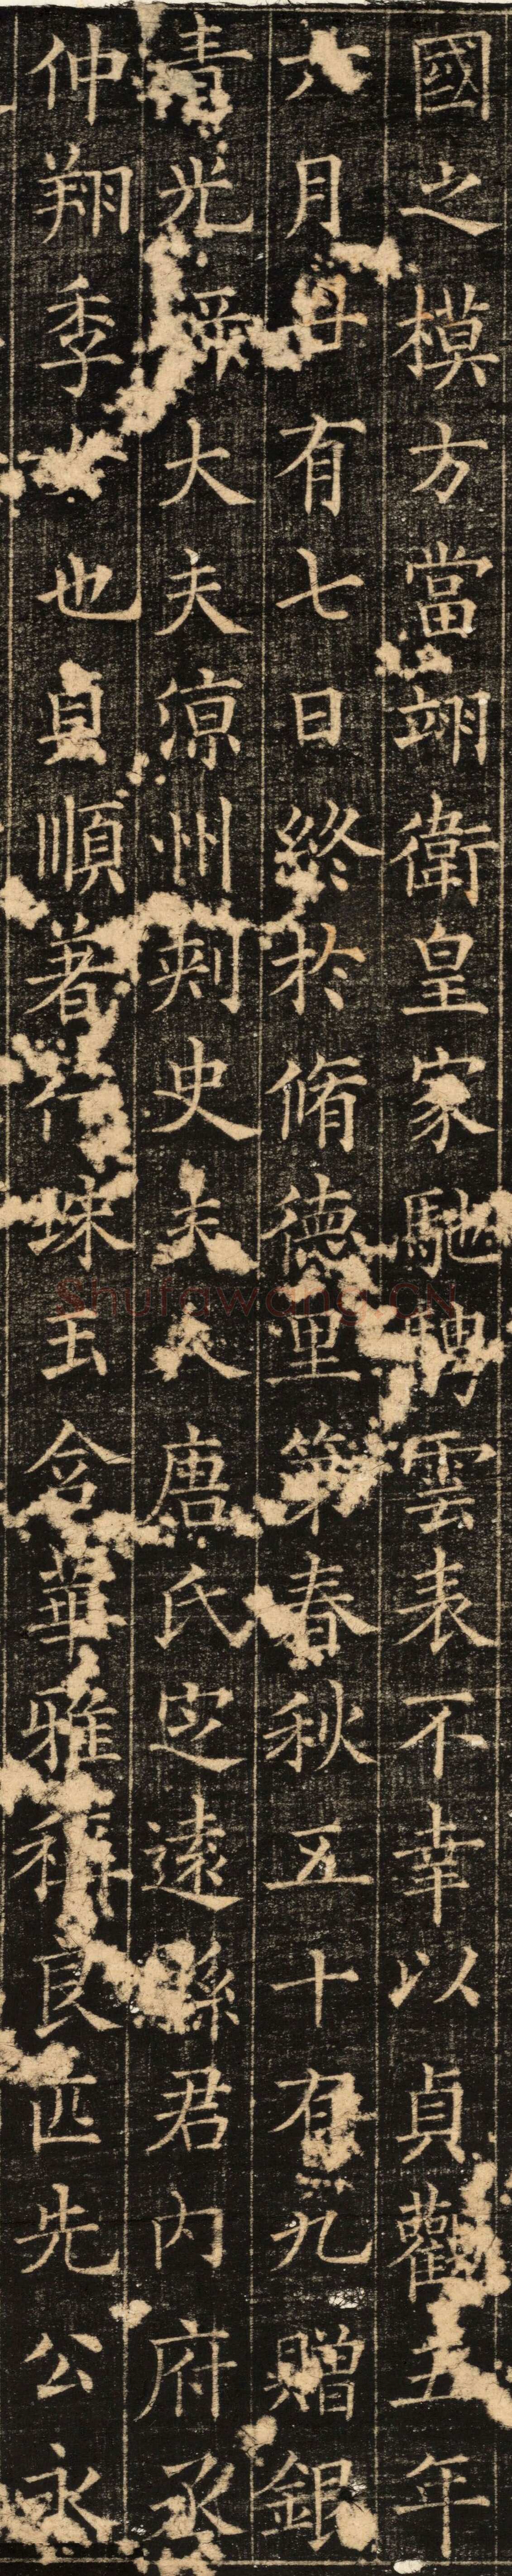 國之模方當翊衛皇家馳騁雲表不幸以貞觀五年
六月廿有七日終於脩德里第春秋五十有九贈銀
青光祿大夫涼州刾史夫人唐氏定遠縣君內府丞
仲翔季女也貞順著行珠玉含華雅稱良匹先公永
Shufawang.CN